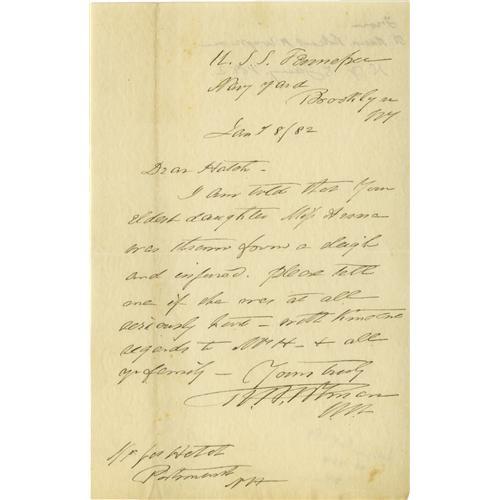 U. S. S. Tennessee
Navy Yard
Brooklyn
NY
Jany 8/82
Dear Hatch -
I am told that your
eldest daughter Miss Anna
was thrown from a sleigh
and injured. please tell
me if she was at all
seriously hurt - with kindest
regards to Mrs H - & all
yr family -
Yours truly
Hatch
Portsmouth
NH